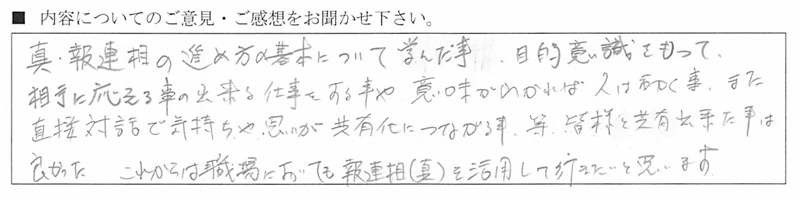 ■ 内容についてのご意見・ご感想をお聞かせ下さい。
真・報連相の進め方の基本について学んだ事、目的意識をもって、
相手に応える事の出来る仕事をする事や意味がわかれば人は動く事、また
直接対話で気持ちや思いが共有化につながる事、等、皆様と共有出来た事は
良かった これからは職場においても報連相(真)を活用して行きたいと思います